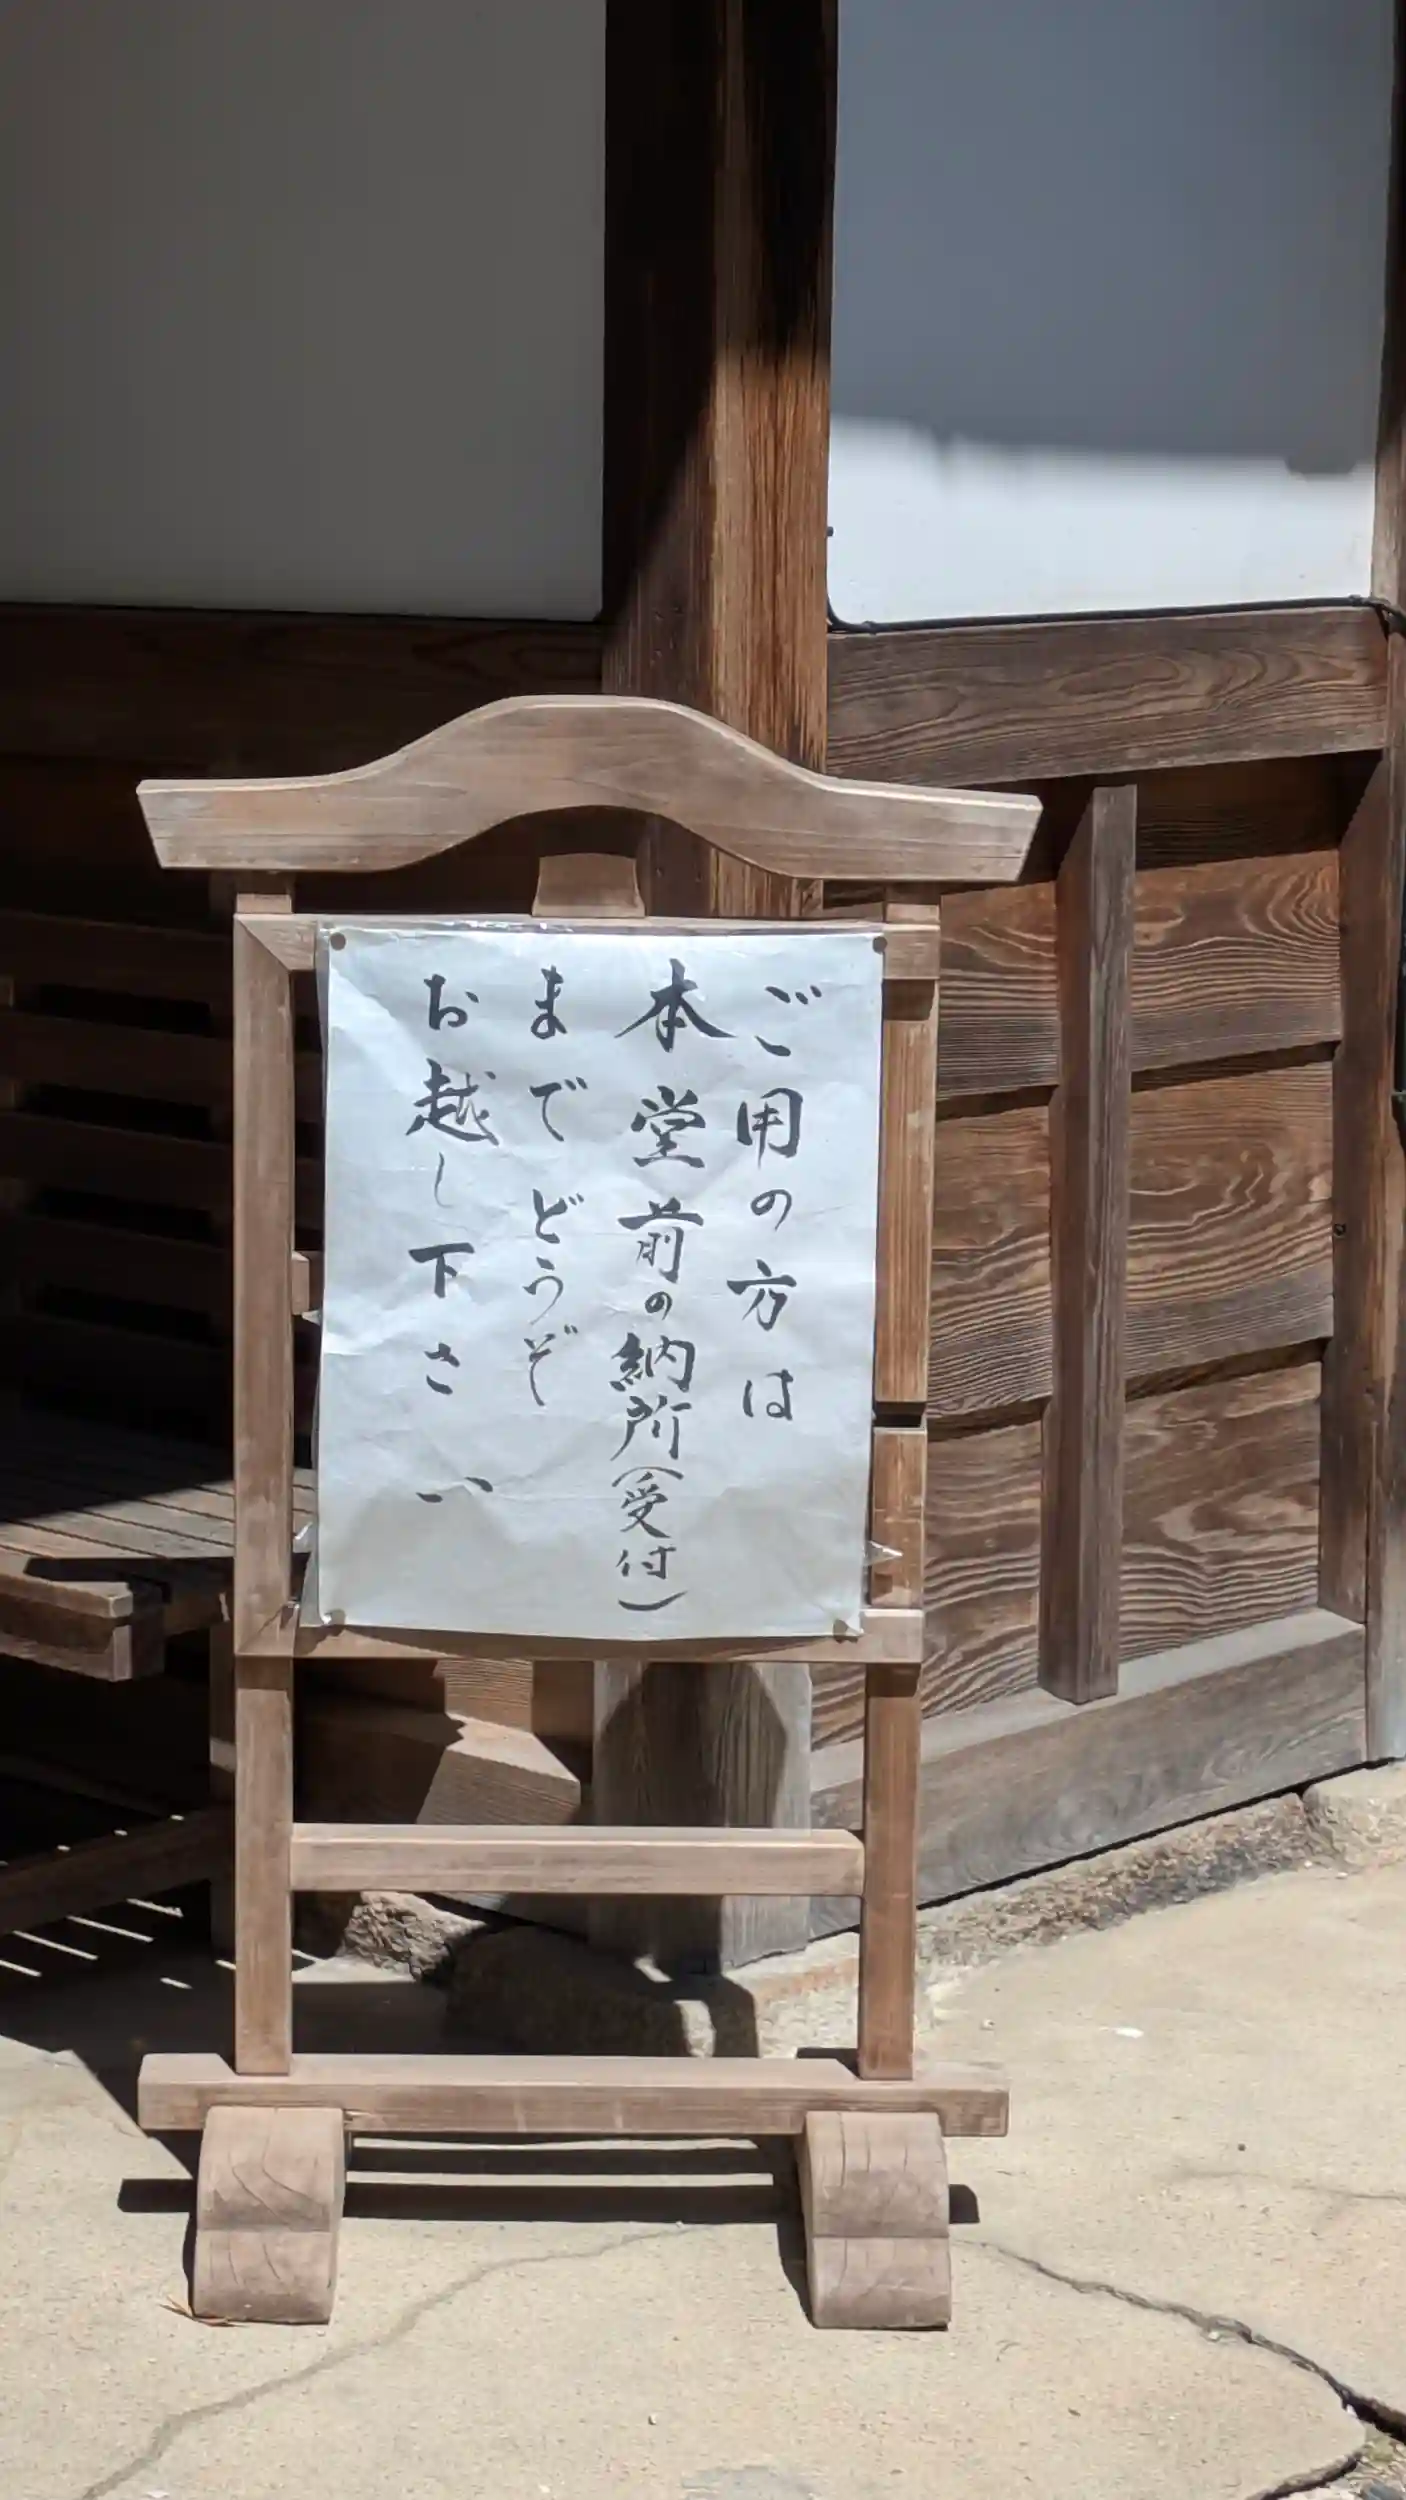 ご用の方は
本堂前の納所(受付)
まで どうぞ
お越し下さい